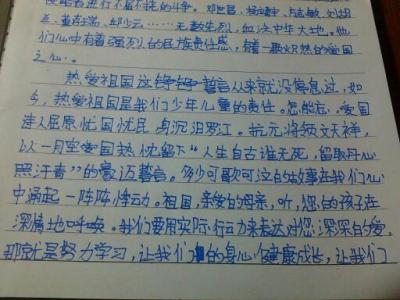 侵略者进行不屈不挠的斗争。邓世昌、杨靖宇、左志敏、刘胡
兰、董存瑞、邱少云……无数先烈，血沃中华大地。他
们心中有着强烈的民族责任感，有着一颗炽热的爱国
之心。
热爱祖国这铮铮誓言从来就没停息过，如
今，热爱祖国是我们少年儿童的责任。怎能忘，爱国
诗人屈原忧国忧民身沉汨罗江。抗元将领文天祥，
以一月室爱国热忱留下“人生自古谁无死，留取丹心
照汗青”的豪迈誓言。多少可歌可泣的故事在我们心
中涌起一阵阵悸动。祖国，亲爱的母亲，听，您的孩子在
深情地呼唤。我们要用实际行动来表达对您深深的爱，
那就是努力学习，让我们的身心健康成长，让我们